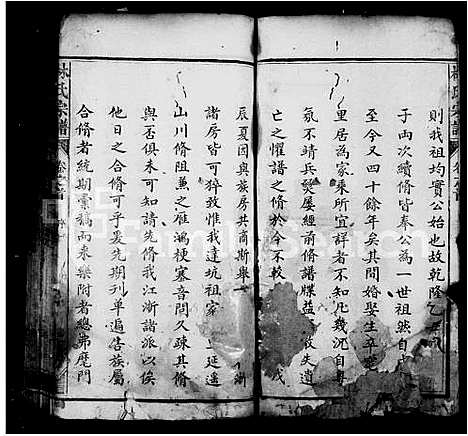 林氏宗譜
則我祖均實公始也故乾隆乙
子両次續脩皆奉公為一世祖然自
至今又四十餘年矣其間婚娶生卒
里居為家乗所宜詳者不知凡幾況自
氛不靖兵燹屢經前脩譜牒益 散失遺
亡之懼譜之脩於今不較 戊
辰夏因與族房共商斯舉
諸房皆可猝致惟我達坑祖家 延遥
山川脩阻魚之雁鴻梗塞音問久疎其脩
與否俱未可知請先脩我江浙諸派以俟
他日之合脩可乎爰先期刋单遍告族屬
合脩者統期彙稿而来樂附者總弟麾門
林氏宗譜
FamilySearch